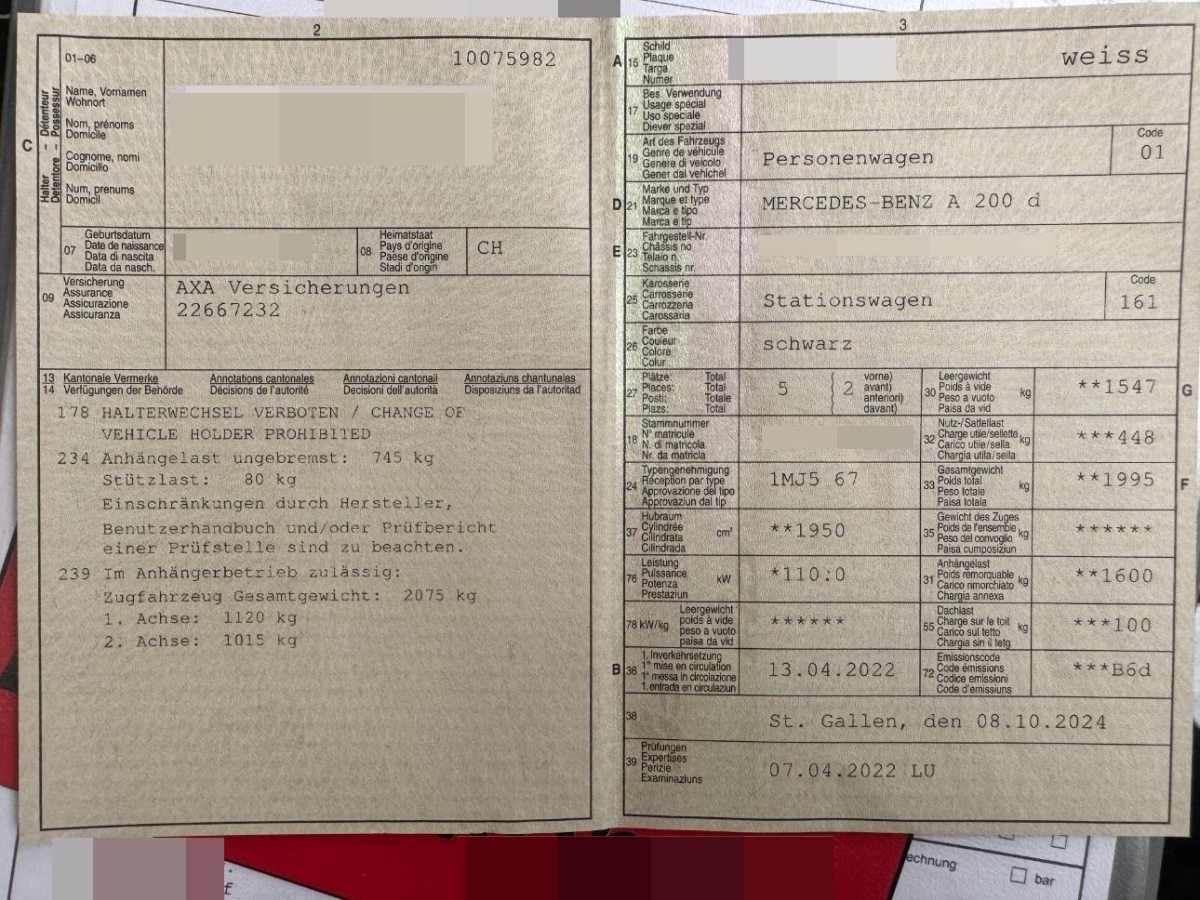 2
01-06
10075982
Halter – Détenteur
Detentore – Possessur
C
Name, Vornamen
Wohnort
Nom, prénoms
Domicile
Cognome, nomi
Domicilio
Num, prenums
Domicil
07
Geburtsdatum
Date de naissance
Data di nascita
Data da nasch.
08
Heimatstaat
Pays d'origine
Paese d'origine
Stadi d'origin
CH
09
Versicherung
Assurance
Assicurazione
Assicuranza
AXA Versicherungen
22667232
13 Kantonale Vermerke Annotations cantonales Annotazioni cantonali Annotaziuns chantunalas
14 Verfügungen der Behörde Décisions de l'autorité Decisioni dell'autorità Disposiziuns da l'autoritad
178 HALTERWECHSEL VERBOTEN / CHANGE OF
VEHICLE HOLDER PROHIBITED
234 Anhängelast ungebremst: 745 kg
Stützlast: 80 kg
Einschränkungen durch Hersteller,
Benutzerhandbuch und/oder Prüfbericht
einer Prüfstelle sind zu beachten.
239 Im Anhängerbetrieb zulässig:
Zugfahrzeug Gesamtgewicht: 2075 kg
1. Achse: 1120 kg
2. Achse: 1015 kg
3
A 15
Schild
Plaque
Targa
Numer
weiss
17
Bes. Verwendung
Usage spécial
Uso speciale
Diever spezial
19
Art des Fahrzeugs
Genre de véhicule
Genere di veicolo
Gener dal vehichel
Personenwagen
Code
01
D 21
Marke und Typ
Marque et type
Marca e tipo
Marca e tip
MERCEDES-BENZ A 200 d
E 23
Fahrgestell-Nr.
Châssis no
Telaio n.
Schassis nr.
25
Karosserie
Carrosserie
Carrozzeria
Carossaria
Stationswagen
Code
161
26
Farbe
Couleur
Colore
Colur
schwarz
27
Plätze: Total
Places: Total
Posti: Totale
Plazs: Total
5
2
vorne)
avant)
anteriori)
davant)
30
Leergewicht
Poids à vide
Peso a vuoto
Paisa da vid
kg
**1547
G
18
Stammnummer
N° matricule
N. di matricola
Nr. da matricla
32
Nutz-/Sattellast
Charge utile/sellette
Carico utile/sella
Chargia utila/sella
kg
***448
24
Typengenehmigung
Réception par type
Approvazione del tipo
Approvaziun dal tip
1MJ5 67
33
Gesamtgewicht
Poids total
Peso totale
Paisa totala
kg
**1995
F
37
Hubraum
Cylindrée
Cilindrata
Cilindrada
cm³
**1950
35
Gewicht des Zuges
Poids de l'ensemble
Peso del convoglio
Paisa cumposiziun
kg
******
76
Leistung
Puissance
Potenza
Prestaziun
kW
*110:0
31
Anhängelast
Poids remorquable
Carico rimorchiato
Chargia annexa
kg
**1600
78 kW/kg
Leergewicht
poids à vide
peso a vuoto
paisa da vid
******
55
Dachlast
Charge sur le toit
Carico sul tetto
Chargia sin il tetg
kg
***100
B 36
1. Inverkehrsetzung
1re mise en circulation
1a messa in circolazione
1. entrada en circulaziun
13.04.2022
72
Emissionscode
Code émissions
Codice emissioni
Code d'emissiuns
***B6d
38
St. Gallen, den 08.10.2024
39
Prüfungen
Expertises
Perizie
Examinaziuns
07.04.2022 LU
f
echnung
bar